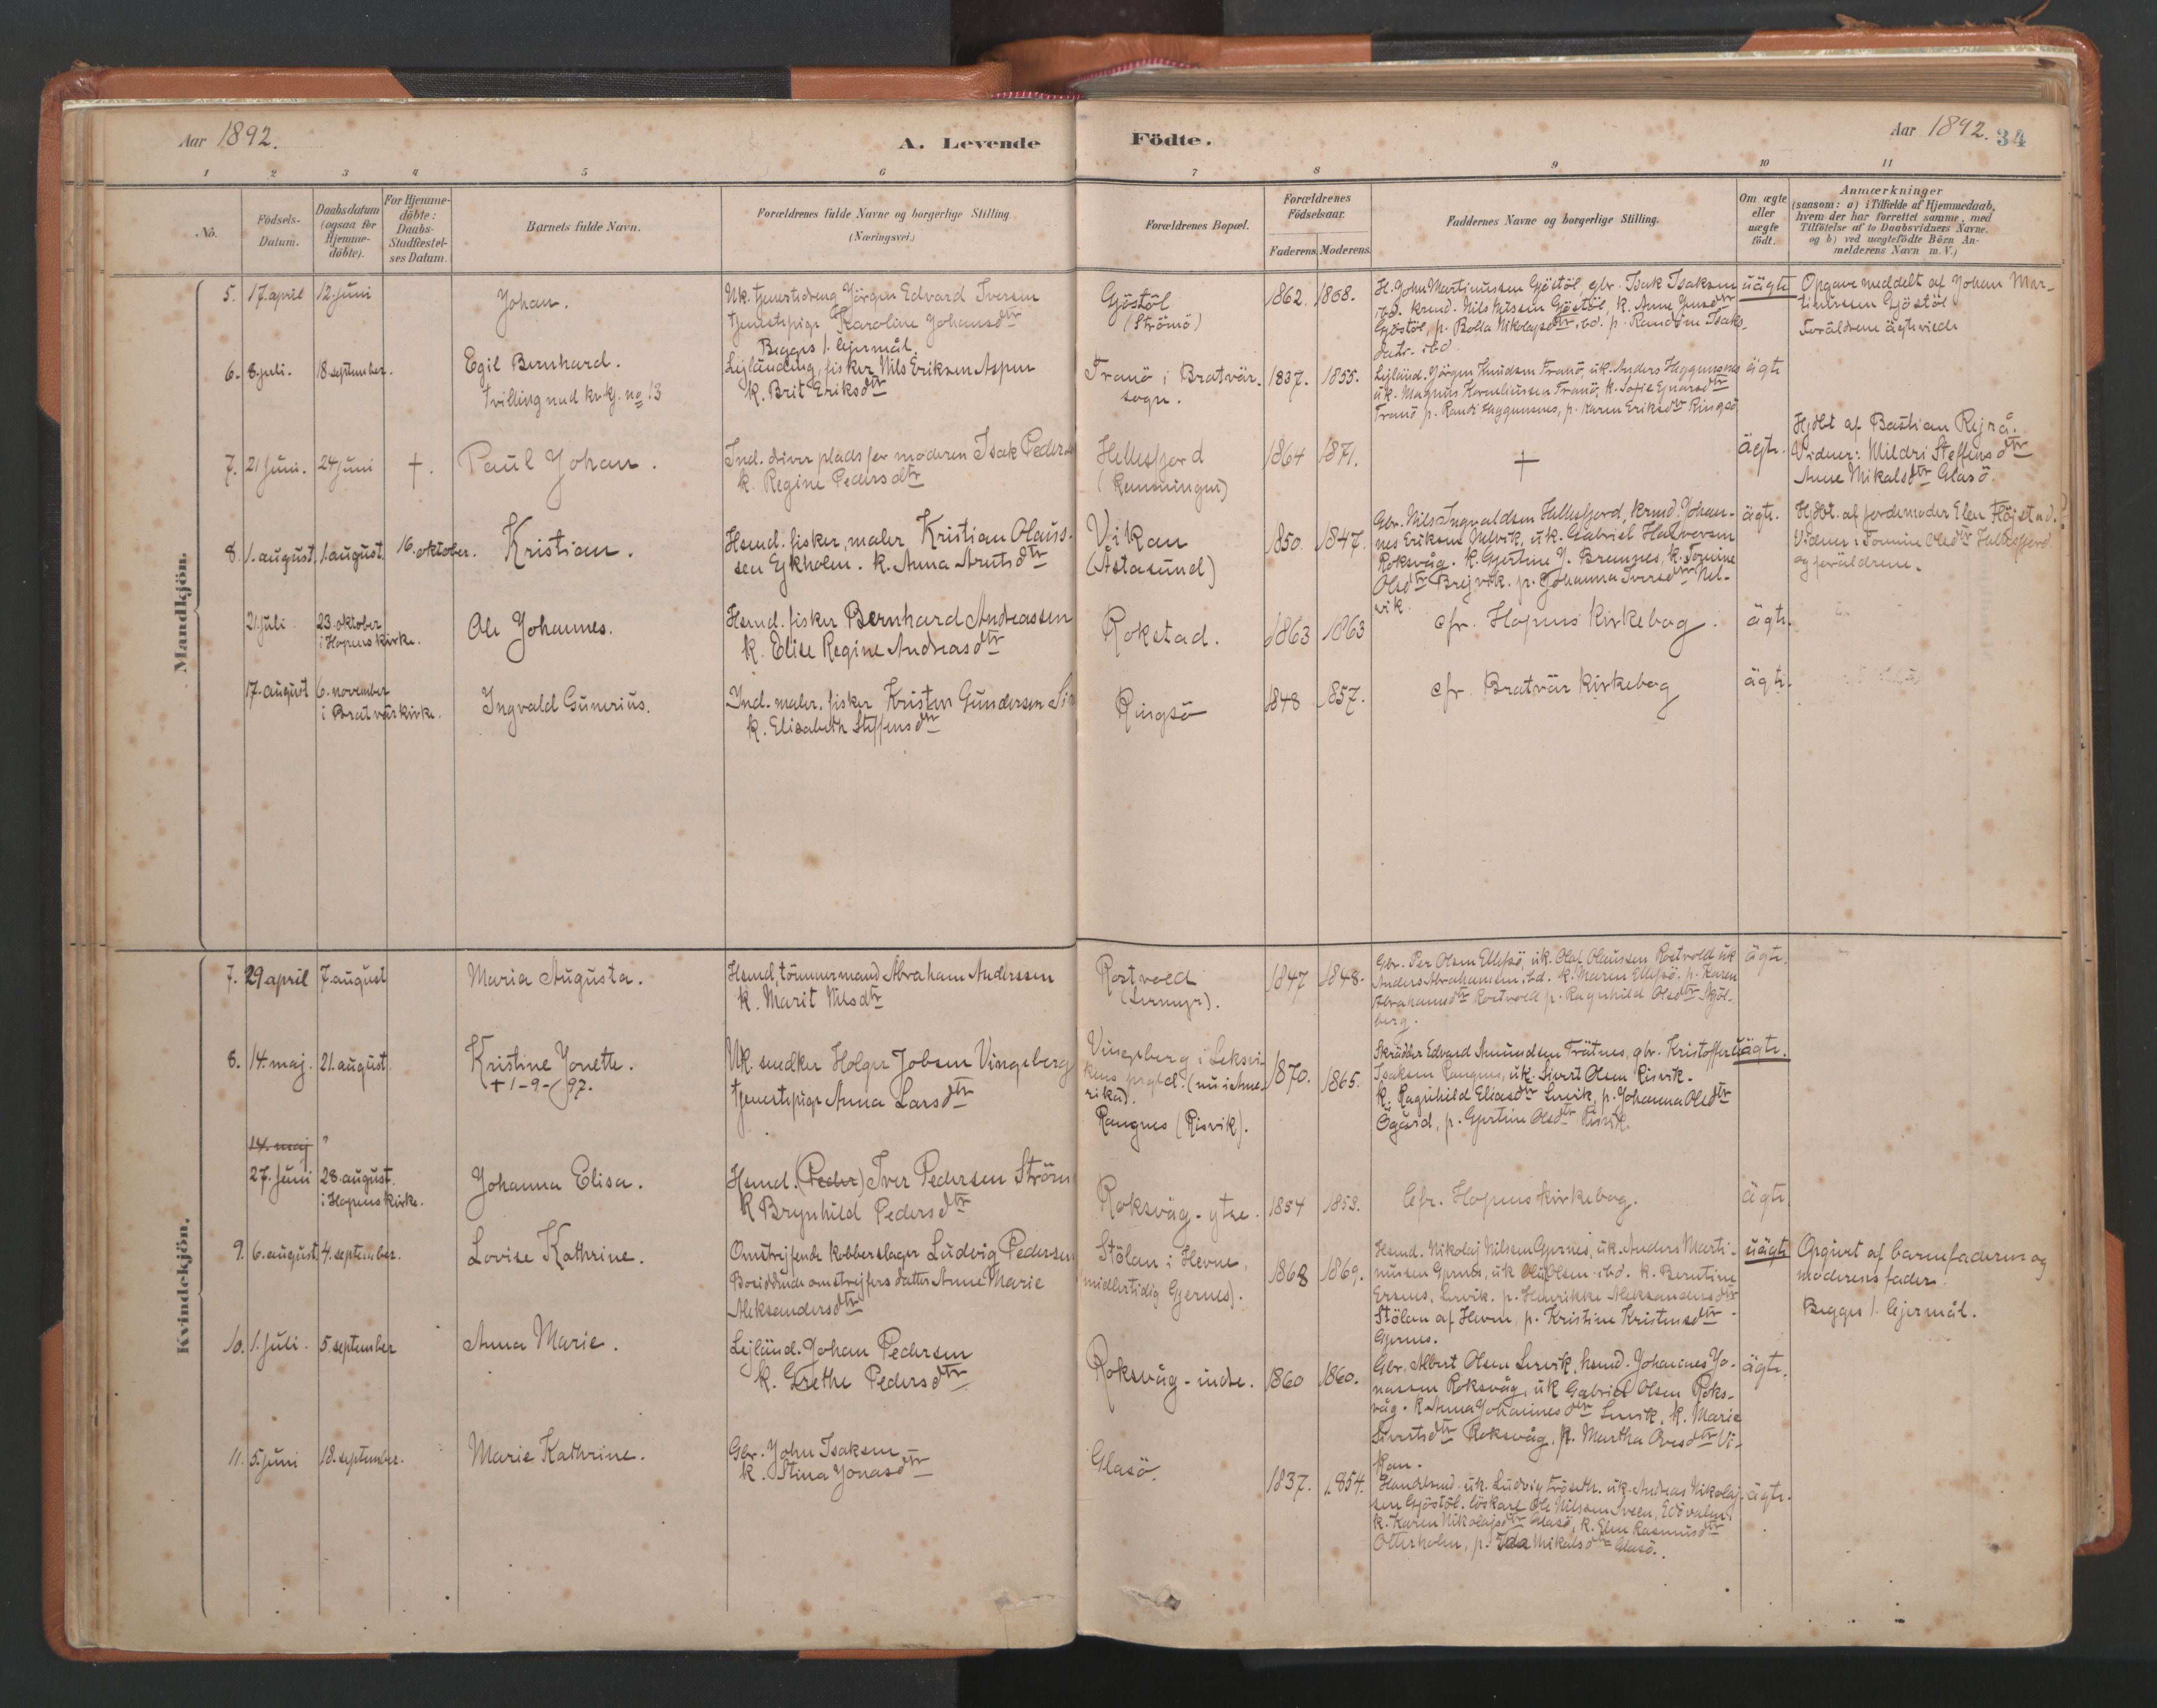 Aar 1892.
A. Levende Födte.
Aar 1892. 34
1 2 3 4 5 6 7 8 9 10 11
No.
Födsels-
Datum.
Daabsdatum
(ogsaa for
Hjemme-
döbte).
For Hjemme-
döbte:
Daabs-
Stadfæstel-
ses Datum.
Barnets fulde Navn.
Forældrenes fulde Navne og borgerlige Stilling
(Næringsvei.)
Forældrenes Bopæl.
Forældrenes
Födselsaar.
Faderens. Moderens.
Faddernes Navne og borgerlige Stilling.
Om ægte
eller
uægte
födt.
Anmærkninger
(saasom: a) i Tilfælde af Hjemmedaab,
hvem der har forrettet samme, med
Tilföielse af to Daabsvidners Navne.
og b) ved uægtefödte Börn An-
melderens Navn m. V.)
Mandkjön.
5. 17. april 12. juni
Johan.
Uk. tjenestedreng Jörgen Edvard Iversen
tjenestepige Karoline Johansdtr
Begges 1. lejermål.
Gjöstöl
(Strömö)
1862. 1868.
H. John Martinussen Gjöstöl, gbr. Isak Isaksen
ibd. krmd. Nils Nilssen Gjöstöl, k. Anne Jensdtr
Gjöstöl, p. Bolla Nikolajsdtr ibd. p. Randine Isaks-
datr. ibd.
uägte
Opgave meddelt af Johan Mar-
tinussen Gjöstöl
Foräldrene ägteviede
6. 8. juli. 18. september.
Egil Bernhard.
Tvilling med kvkj. no 13
Lejländing, fisker Nils Eriksen Aspen
k. Brit Eriksdtr
Tranö i Bratvär
sogn.
1837. 1855.
Lejländ. Jörgen Knudsen Tranö, uk. Anders Heggensnes
uk. Magnus Korneliussen Tranö, k. Sofie Ejnarsdtr
Tranö p. Randi Heggensnes, p. Karen Eriksdtr Ringsö
ägte
7. 21. juni. 24. juni †.
Paul Johan.
Ind. driver plads for moderen Isak Peders
k. Regine Pedersdtr
Hellesfjord
(Remmingen)
1864 1871.
†
ägte.
Hjdbt af Bastian Rejrå.
Vidner: Mildri Steffensdtr
Anne Mikalsdtr Glasö.
8. 1. august. 1. august. 16. oktober.
Kristian.
Hsmd. fisker, maler Kristian Olaus-
sen Ejkholm. k. Anna Arntsdtr
Vikan
(Åstasund)
1850. 1847.
Gbr. Nils Ingvaldsen Hellesfjord, krmd. Johan-
nes Eriksen Nelvik, uk. Gabriel Halversen
Roksvåg. k. Gjertine J. Bremnes, k. Tomine
Olsdtr Brejvik. p. Johanna Iversdtr Nel-
vik.
ägte.
Hjdbt. af jordemoder Elen Höjstad.
Vidner: Tomine Olsdtr Hellesfjord
og foräldrene.
21. juli 23. oktober
i Hopens kirke.
Ole Johannes.
Hsmd. fisker Bernhard Andreassen
k. Elise Regine Andreasdtr
Rokstad.
1863 1863
cfr. Hopens kirkebog.
ägte.
17. august 6. november
i Bratvär kirke.
Ingvald Gunerius.
Ind. maler, fisker Kristen Gundersen
k. Elisabeth Steffensdtr
Ringsö
1848 1857.
cfr. Bratvär kirkebog
ägte.
Kvindekjön.
7. 29 april 7. august
Maria Augusta.
Hsmd, tömmermand Abraham Anderssen
k. Marit Nilsdtr
Rostvold
(Lermyr).
1847 1848.
Gbr. Per Olsen Ellefsö, uk. Olaf Olaussen Rostvold uk
Anders Abrahamsen ibd. k. Maren Ellefsö. p. Karen
Abrahamsdtr Rostvold p. Ragnhild Olsdtr Mjöl-
berg.
ägte.
8. 14. maj. 21. august.
Kristine Jonette.
† 1-9-92.
Uk. snedker Holger Jobsen Vingsberg
tjenestepige Anna Larsdtr
Vingsberg i Leksvi-
kens prgld. (nu i Ame-
rika).
Rangnes (Risvik).
1870. 1865.
Skrädder Edvard Amundsen Trätnes, gbr. Kristoffer
Isaksen Rangnes, uk. Sivert Olsen Risvik.
k. Ragnhild Eliasdtr Lervik, p. Johanna Olsdtr
Ögård, p. Gjertine Olsdtr Risvik.
uägte.
14. maj ?
27. juni 28. august.
i Hopens kirke.
Johanna Elisa.
Hsmd. (Peder) Iver Pedersen Ström
k Brynhild Pedersdtr
Roksvåg-ytre.
1854 1853.
Cfr. Hopens kirkebog.
ägte.
9. 6. august. 4. september.
Lovise Kathrine.
Omstrejfende kobberslager Ludvig Pedersen
omstrejfers datter Anne Marie
Aleksandersdtr
Stölan i Hevne,
midlertidig Gjernes).
1868 1869.
Hsmd. Nikolaj Nilsen Gjernes, uk. Anders Marti-
nussen Gjernes, uk Olsen ibd. k. Berntine
Lervik. p. Henrikke Aleksandersdtr
Stölan af Hevne, p. Kristine Kristensdtr
Gjernes.
uägte
Opgivet af barnefaderen og
moderens fader.
Begges 1. lejermål.
10. 1. juli. 5. september
Anna Marie.
Lejländ. Johan Pedersen
k. Grethe Pedersdtr
Roksvåg-indre.
1860 1860.
Gbr. Albert Olsen Lervik, hsmd. Johannes Jo-
nassen Roksvåg, uk Gabriel Olsen Roks-
våg. k Anna Johannesdtr Lervik, k. Marie
Sivertsdtr Roksvåg, p. Martha Ovesdtr Vi-
kan.
ägte.
11. 5. juni 18. september.
Marie Kathrine.
Gbr. John Isaksen
k. Stina Jonasdtr
Glasö.
1837. 1854.
Handelsmd. uk. Ludvig Fröseth. uk. Andreas Nikolaj-
sen Gjöstöl. löskarl Ole Nilssen Sveen,
k. Karen Nikolajsdtr Glasö, k. Elen Rasmusdtr
Otterholm, p. Ida Mikalsdtr Glasö.
ägte.